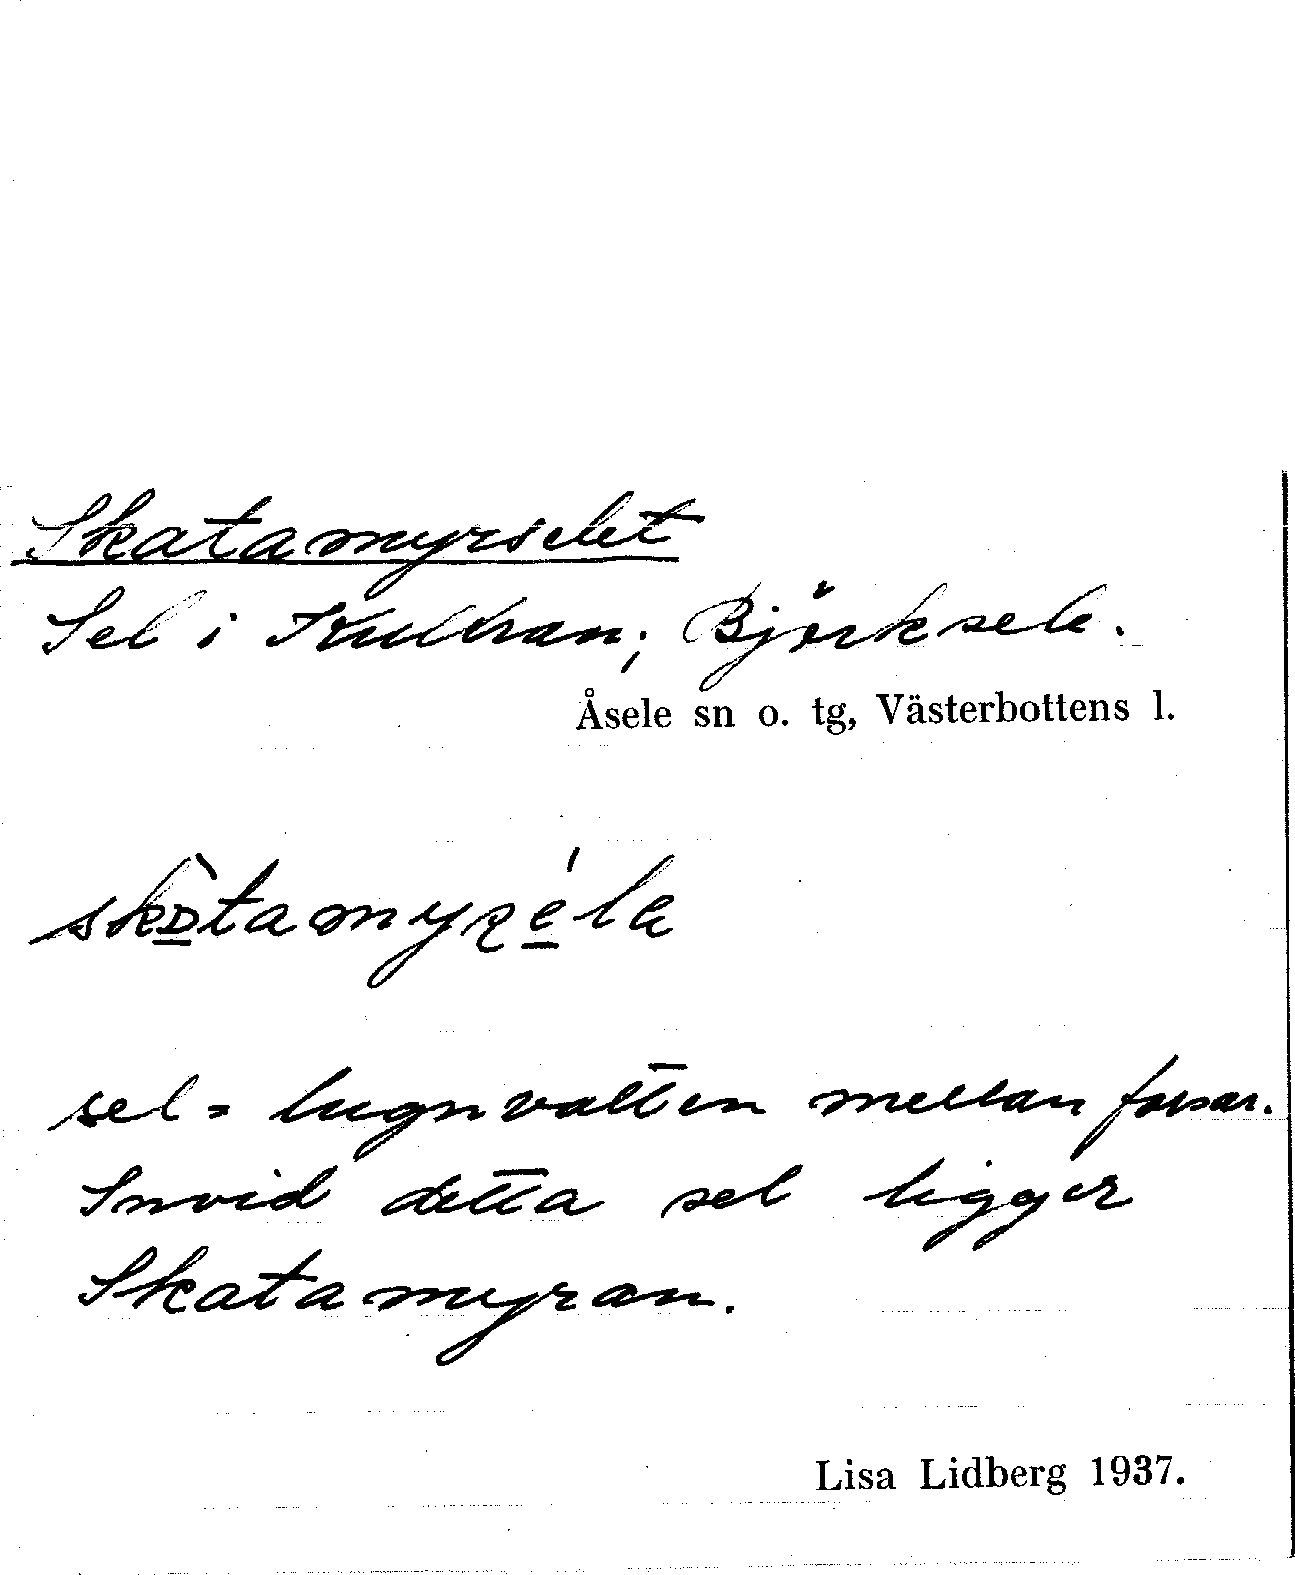 Skatamyrselet
Sel i Kultran; Björksele.
Åsele sn o. tg, Västerbottens l.
sel = lugnvatten mellan forsar.
Invid detta sel ligger
Skatamyran.
Lisa Lidberg 1937.